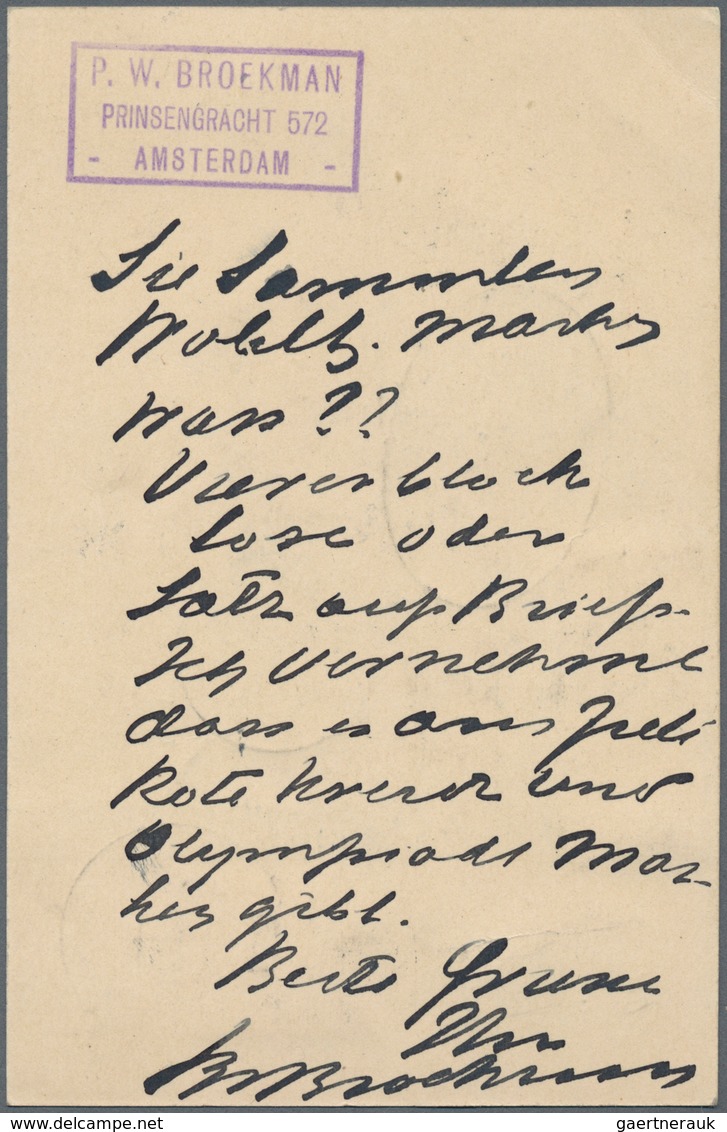 P. W. BROEKMAN
PRINSENGRACHT 572
- AMSTERDAM -
Sie Sammlen
Wohltg. Marken
was ??
Viererblock
lose oder
Satz auf Brief.
Ich vernehme
dass es
Rote Kreuz und
Olympiade Mar-
ken gibt.
Beste Grüsse
Ihr
Broekman
gaertnerauk